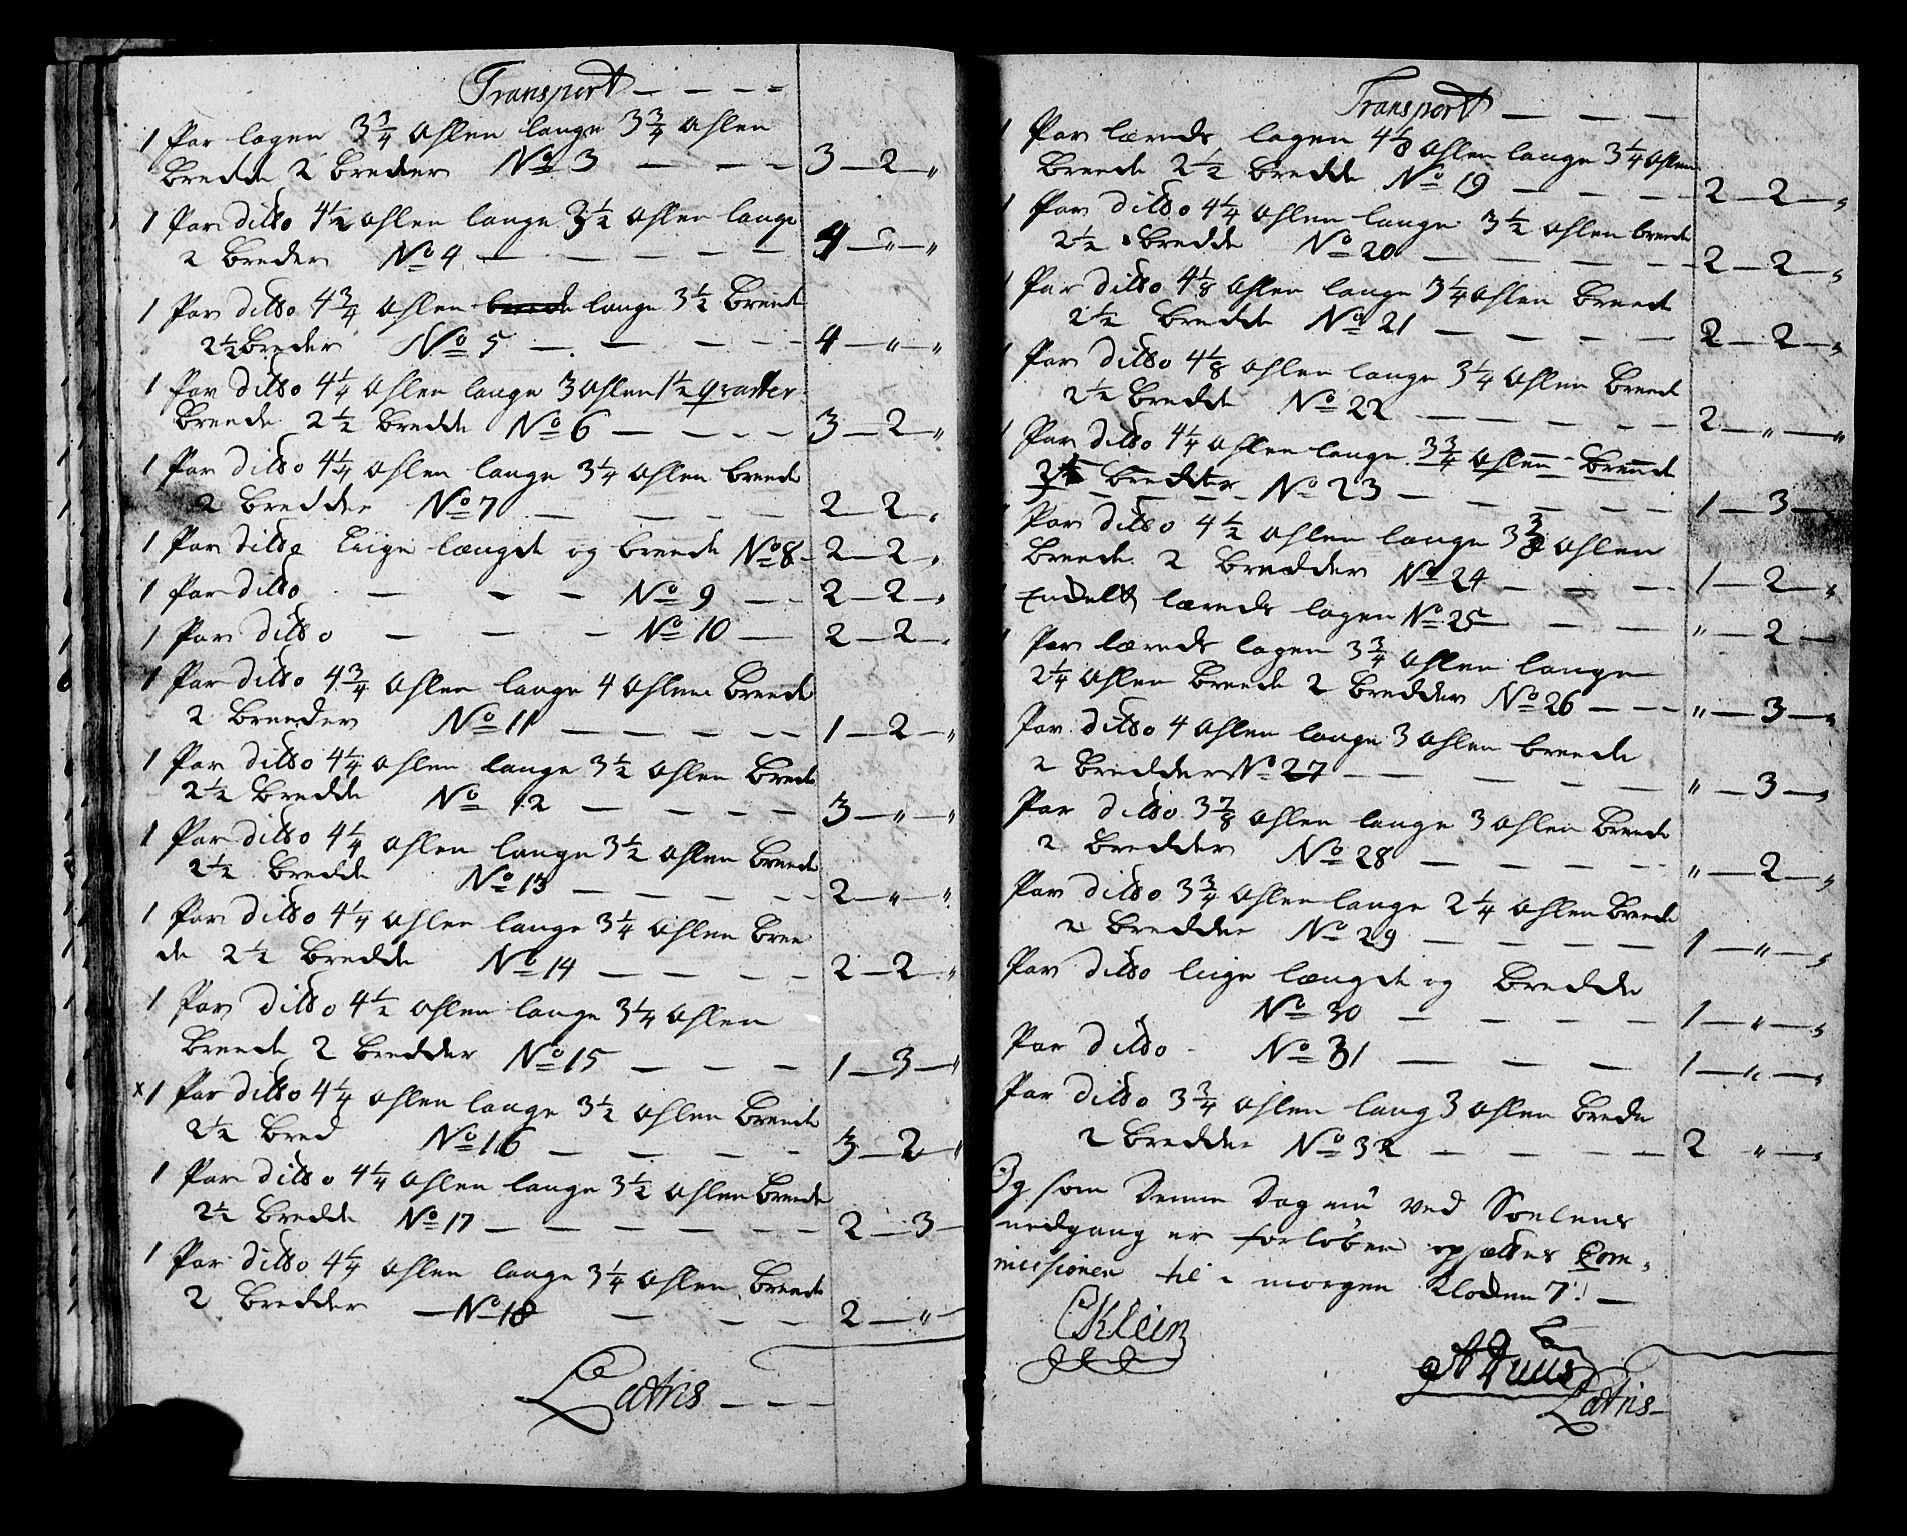 Transport
1 Par lagen 3¾ Ahlen lange 3¾ Ahlen
Brede 2 Breder No 3 3 — 2 — "
1 Par ditto 4½ Ahlen lange 3½ Ahlen lange
2 Breder No 4 4 — " — "
1 Par ditto 4¾ Ahlen lange 3½ Breede
2½ Breder No 5 4 — " — "
1 Par ditto 4¼ Ahlen lange 3 Ahlen 1½ quarter
Breede 2½ Bredde No 6 3 — 2 — "
1 Par ditto 4¼ Ahlen lange 3¼ Ahlen breede
2 Bredder No 7 2 — 2 — "
1 Par ditto liige længde og breede No 8 2 — 2 — "
1 Par ditto No 9 2 — 2 — "
1 Par ditto No 10 2 — 2 — "
1 Par ditto 4¾ Ahlen lange 4 Ahlen Breede
2 Breeder No 11 1 — 2 — "
1 Par ditto 4¼ Ahlen lange 3½ Ahlen Brede
2½ Bredde No 12 3 — " — "
1 Par ditto 4¼ Ahlen lange 3½ Ahlen Breede
2½ Bredde No 13 2 — " — "
1 Par ditto 4¼ Ahlen lange 3¼ Ahlen Bree
de 2½ Bredde No 14 2 — 2 — "
1 Par ditto 4½ Ahlen lange 3¼ Ahlen
Breede 2 Bredder No 15 1 — 3 — "
x 1 Par ditto 4¼ Ahlen lange 3½ Ahlen Breede
2½ Bred No 16 3 — 2 — "
1 Par ditto 4¼ Ahlen lange 3½ Ahlen Breede
2½ Bredde No 17 2 — 3 —
1 Par ditto 4¼ Ahlen lange 3¼ Ahlen Breede
2 Bredder No 18 2 — " —
Latris
Transport
1 Par lærreds lagen 4⅛ Ahlen lange 3¼ Ahlen
Breede 2½ Bredde No 19 2 — 2 — "
1 Par ditto 4¼ Ahlen lange 3½ Ahlen breede
2½ Bredde No 20 2 — 2 — "
1 Par ditto 4⅛ Ahlen lange 3¼ Ahlen Breede
2½ Bredde No 21 2 — 2 — "
1 Par ditto 4⅛ Ahlen lange 3¼ Ahlen Breede
2½ Bredde No 22 2 — " — "
1 Par ditto 4¼ Ahlen lange 3¾ Ahlen Breede
Bredder No 23 1 — 3 —
Par ditto 4½ Ahlen lange Ahlen
Breede 2 Bredder No 24 1 — 2 — "
Enkelt lærreds lagen No 25 " — 2 —
1 Par lærreds lagen 3¾ Ahlen lange
2¼ Ahlen Breede 2 Bredder No 26 " — 3 — "
Par ditto 4 Ahlen lange 3 Ahlen breede
2 Bredder No 27 " — 3 — "
Par ditto 3⅞ Ahlen lange 3 Ahlen Breede
2 Bredder No 28 " — 2 — "
Par ditto 3¾ Ahlen lange 2¼ Ahlen Breede
2 Bredder No 29 1 — " — "
Par ditto liige længde og Bredde
No 30 1 — " — "
Par ditto No 31 1 — " — "
Par ditto 3¾ Ahlen lang 3 Ahlen Brede
2 Bredder No 32 2 " — "
Og som Denne Dag nu ved Soelens
nedgang er forløben opsættes Com-
missionen til i morgen Klokken 7.
CKlein
Duus
Latris